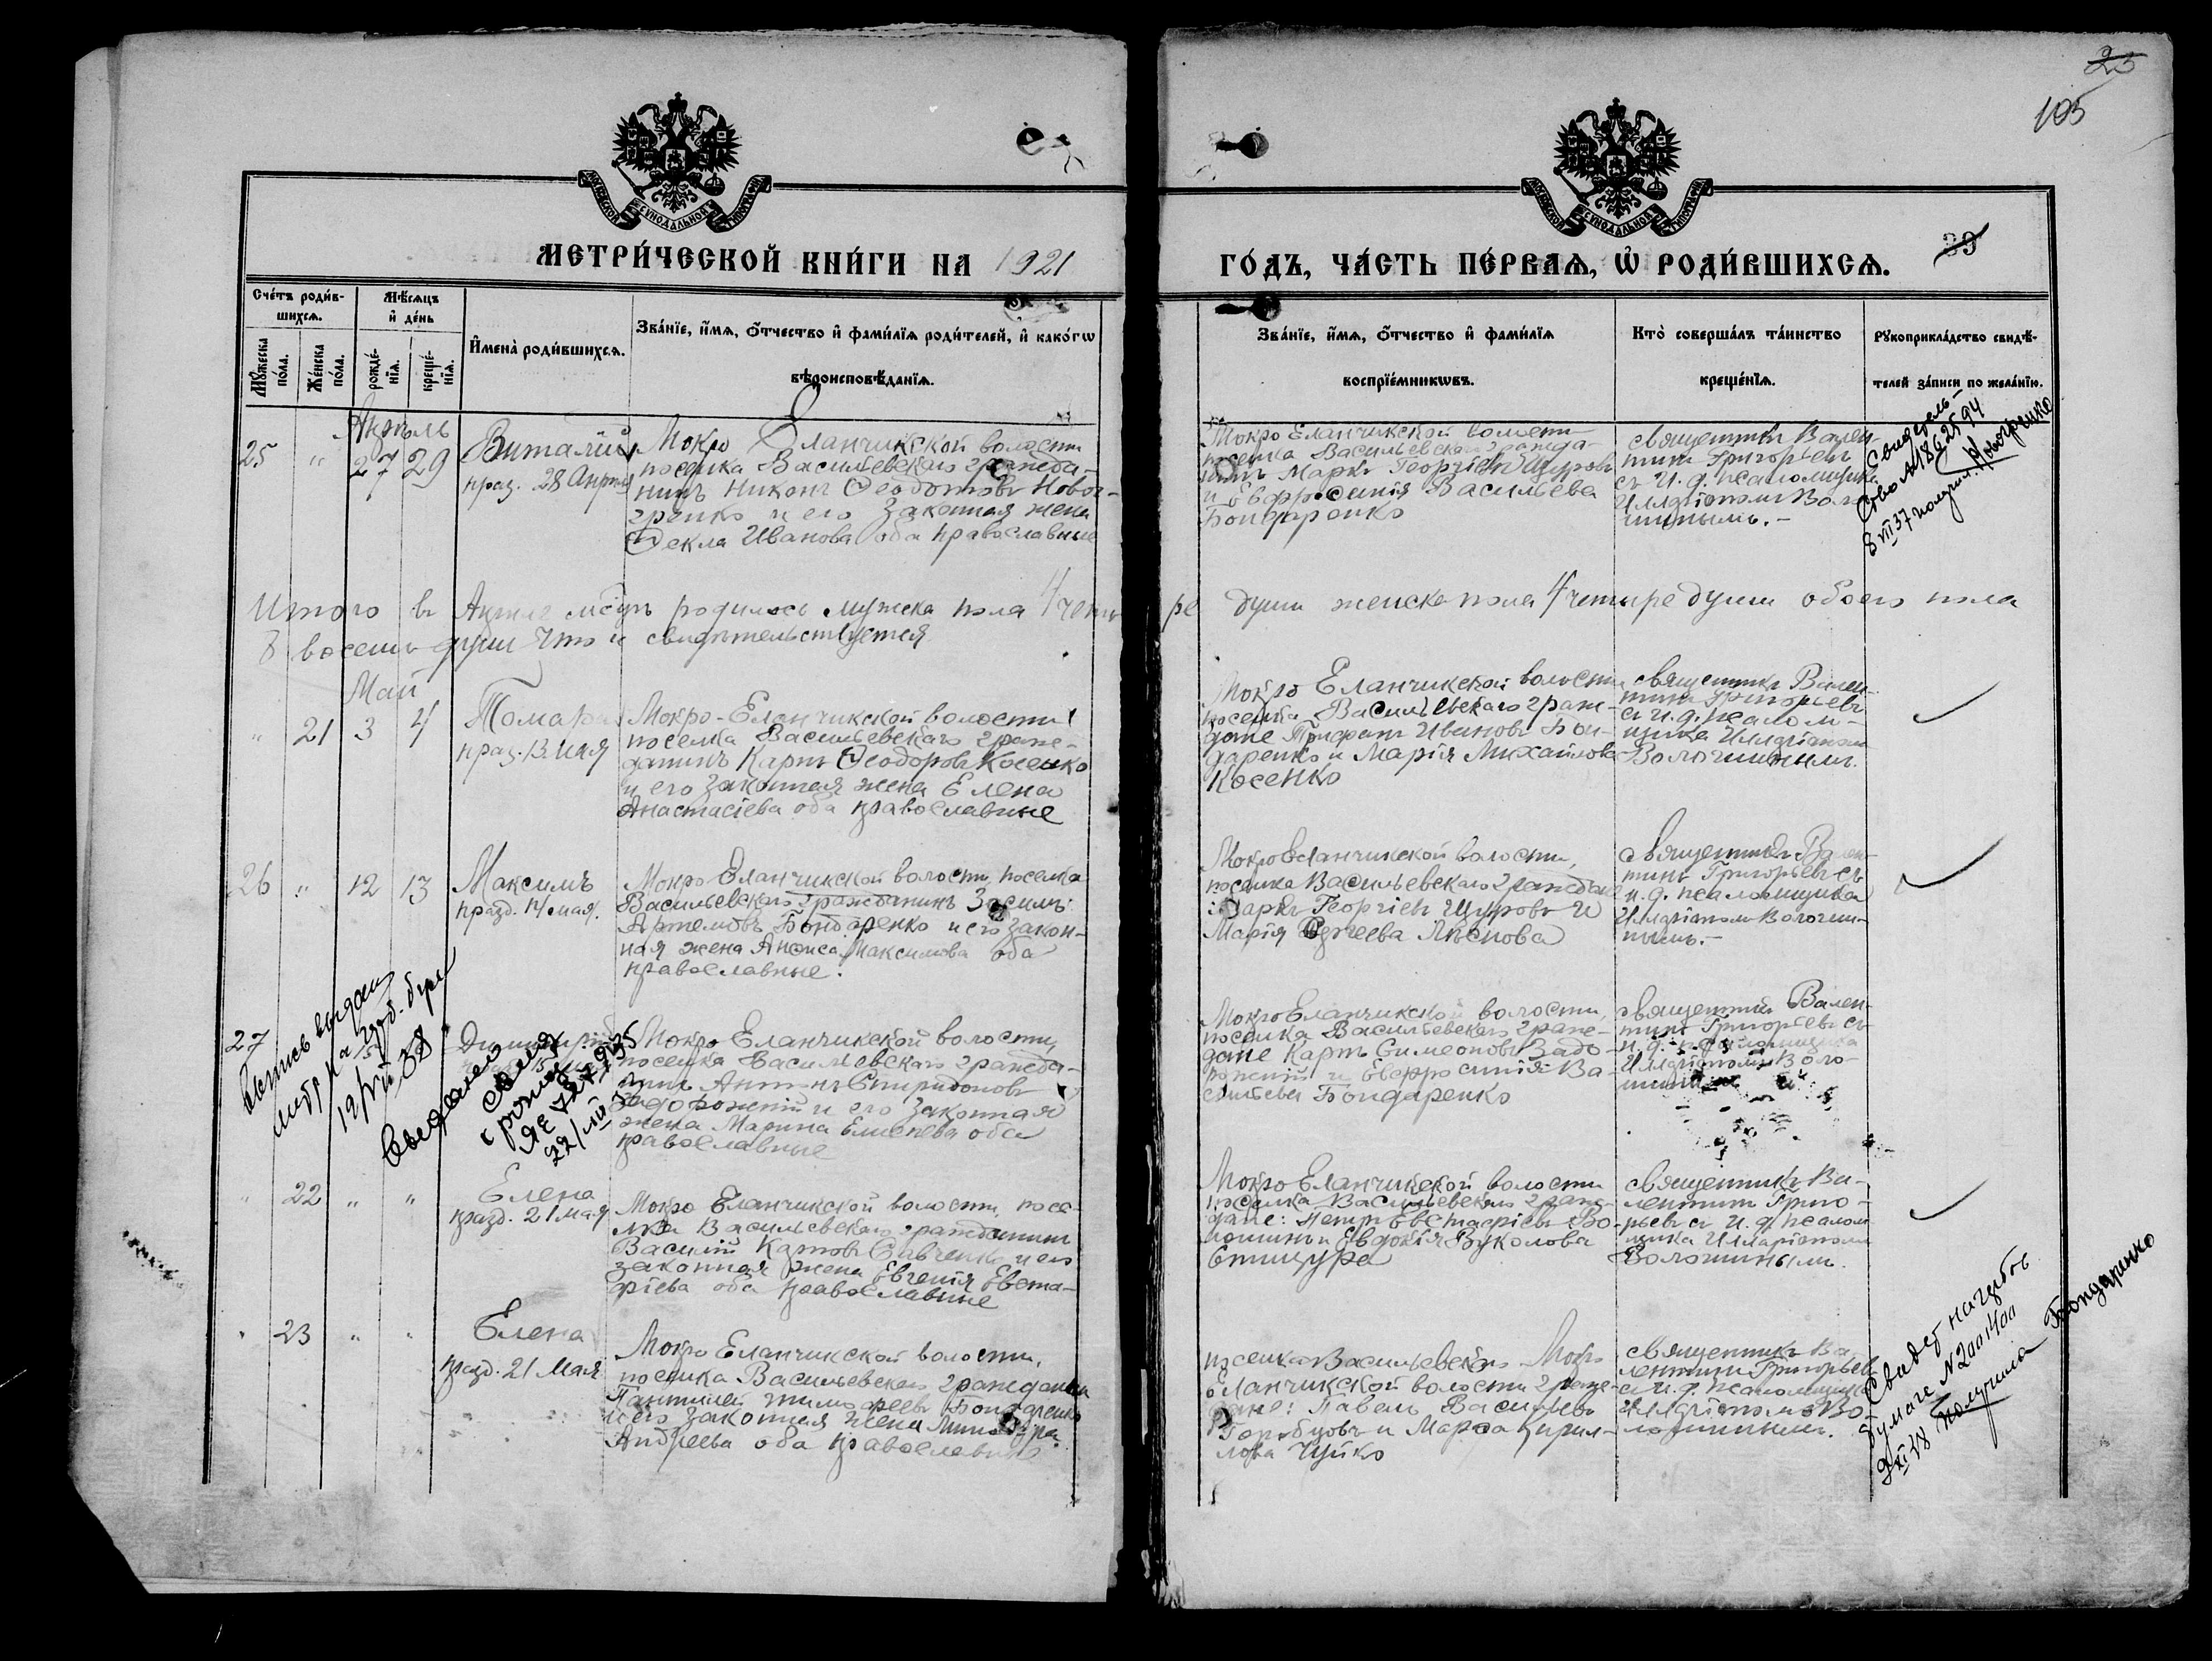 25
105
МЕТРИ́ЧЕСКОЙ КНИ́ГИ НА 1921
ГО́ДЪ, ЧА́СТЬ ПЕ́РВАѦ, Ѡ РОДИ́ВШИХСѦ.
39
Сче́тъ роди́в-
шихсѧ.
Мꙋ́жеска
по́ла.
Же́нска
по́ла.
Мѣ́сѧцъ
и҆ де́нь
рожде́-
нїѧ.
креще́-
нїѧ.
И҆мена̀ роди́вшихсѧ.
Зва́нїе, и҆́мѧ, ѻ҆́тчество и҆ фами́лїѧ роди́телей, и҆ како́гѡ
вѣроисповѣ́данїѧ.
Зва́нїе, и҆́мѧ, ѻ҆́тчество и҆ фами́лїѧ
воспрїе́мникѡвъ.
Кто̀ соверша́лъ та́инство
креще́нїѧ.
Рꙋкоприкла́дство свидѣ́-
телей за́писи по жела́нїю.
Апрѣль
25 " 27 29
Виталій
праз. 28 Апрѣля
Мокро Еланчикской волости
поселка Васильевскаго гражда-
нинъ Никонъ Ѳеодотовъ Новог-
ренко и его законная жена
Ѳекла Иванова оба православные
Мокро Еланчикской волости
поселка Васильевскаго гражда-
нинъ Маркъ Георгіевъ Щуровъ
и Евфросинія Васильева
Бондаренко
священникъ Вален-
тинъ Григорьевъ
съ и. д. псаломщика
Илларіономъ Воло-
шинымъ.-
Свидетель-
ство № 1862594
8 VII 37 получил Новогренко
Итого въ Апрѣле мѣсяцѣ родилось мужска пола 4 четы
ре души женска пола 4 четыре души обоего пола
8 восемь душъ что и свидѣтельствуется
Май
" 21 3 4
Томара
праз. 13 мая
Мокро-Еланчикской волости
поселка Васильевскаго граж-
данинъ Карпъ Ѳеодоровъ Косенко
и его законная жена Елена
Анастасіева оба православные
Мокро Еланчикской волости
поселка Васильевскаго граж-
дане Трифонъ Ивановъ Бон-
даренко и Марія Михайлова
Косенко
священникъ Вален-
тинъ Григорьевъ
съ и. д. псалом-
щика Илларіономъ
Волошинымъ.
26 " 12 13
Максимъ
празд. 14 мая.
Мокро Еланчикской волости, поселка
Васильевскаго Гражданинъ Засимъ
Артемовъ Бондаренко и его закон-
ная жена Анѳиса Максимова оба
православные.
Мокро Еланчикской волости,
поселка Васильевскаго граждане
Маркъ Георгіевъ Щуровъ и
Марія Сергеева Лѣснова
священникъ Вален-
тинъ Григорьевъ съ
и. д. псаломщика
Илларіономъ Волоши-
нымъ.-
27
выпись выдана
19/VII 38
Выдано
ЯЕ
22/III
Димитрій
Мокро Еланчикской волости,
поселка Васильевскаго гражда-
нинъ Антонъ Спиридоновъ
Задорожній и его законная
жена Марина Елисеева оба
православные
Мокро Еланчикской волости,
поселка Васильевскаго граж-
дане Карпъ Симеоновъ Задо-
рожній и Евфросинія Ва-
сильева Бондаренко
священникъ Вален-
тинъ Григорьевъ съ
и. д. псаломщика
Илларіономъ Воло-
" 22 " "
Елена
празд. 21 мая
Мокро Еланчикской волости, посе-
лка Васильевскаго гражданинъ
Василій Карповъ Савченко и его
законная жена Евгенія Евста-
фіева оба православные
Мокро Еланчикской волости
поселка Васильевскаго граж-
дане: Петръ Евстафіевъ Во-
лошинъ и Евдокія Вуколова
священникъ Ва-
лентинъ Григо-
рьевъ съ и. д. псалом
щика Илларіономъ
Волошинымъ.
" 23 " "
Елена
празд. 21 Мая
Мокро Еланчикской волости,
поселка Васильевскаго гражданинъ
Пантилей Тимофеевъ Бондаренко
и его законная жена
Андреева оба православные
поселка Васильевскаго Мокро
Еланчикской волости граж-
дане: Павелъ Васильевъ
и Марѳа Кирил-
лова Чуйко
священникъ Ва-
лентинъ Григорьевъ
съ и. д. псаломщика
Илларіономъ Во-
лошинымъ.
Свидет
бумаге № 2001400
Получила Бондаренко